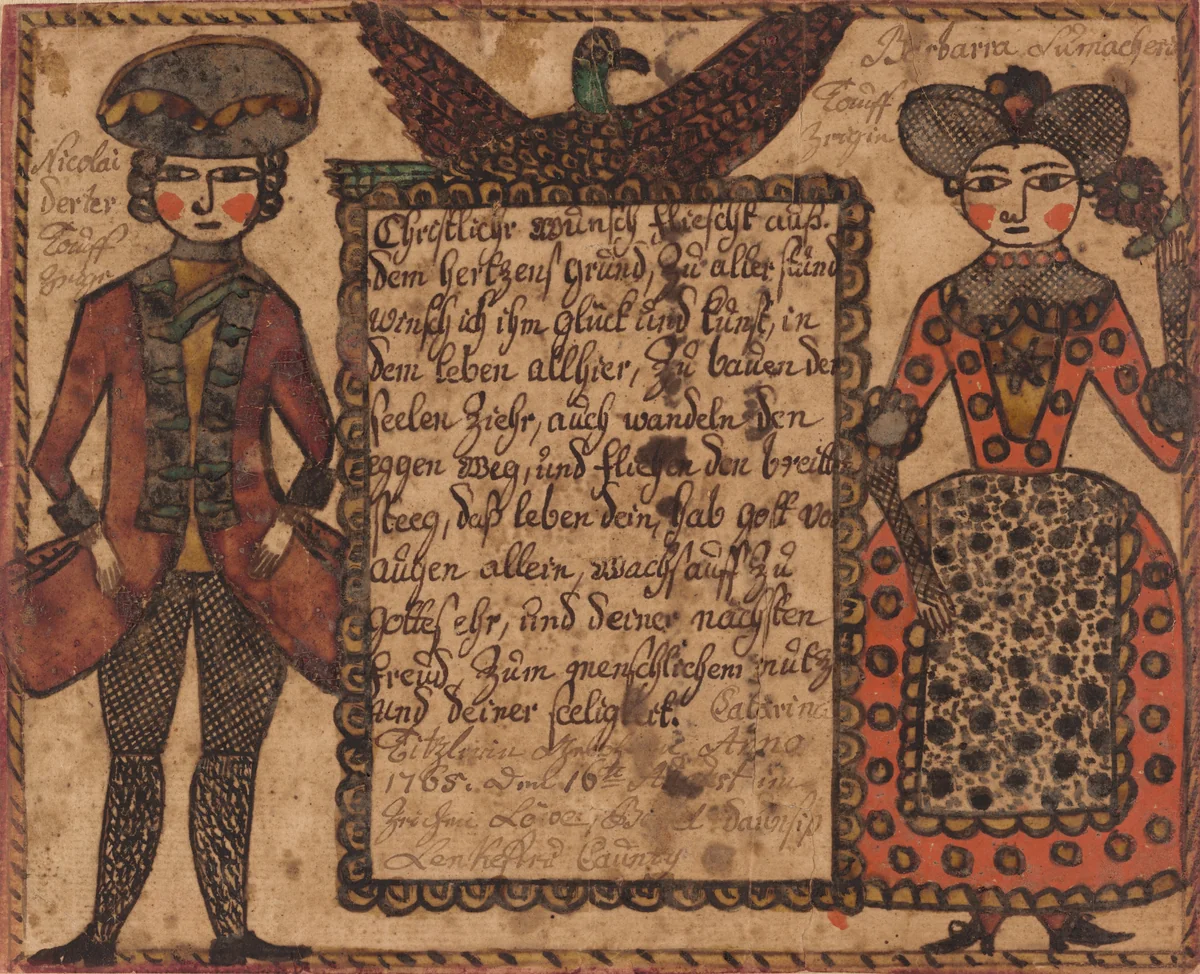 Nicolai
Derter
Touff
Barbarra Sumachern
Touff
Christlichr Wunsch fliescht auß.
dem hertzens grund, Zu aller stund
winsch ich ihm glück und kunst, in
dem leben allhier, Zu bauen der
seelen Ziehr, auch wandeln den
eggen Weg, und fliehen den breitten
steeg, daß leben dein, hab gott vor
augen allein, Wachs auff zu
gottes ehr, und deiner nächsten
freud, Zum menschlichem nutz
und deiner seeligkeit. Catarina
Anno
1765. Den 16te August im
Zeichen Löwen,
Lenkestru Caunty